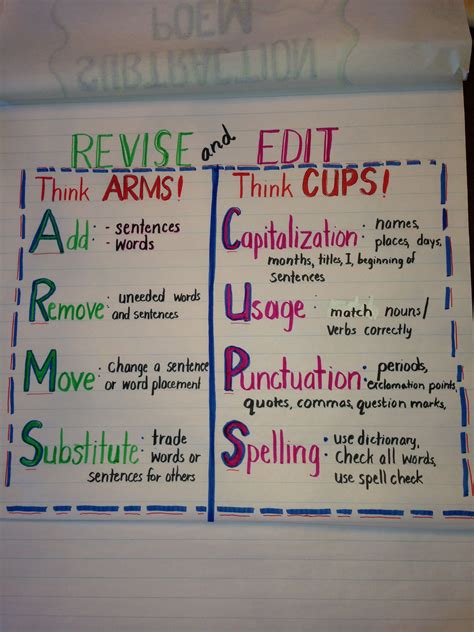 SUBTRACTION
POEM
REVISE and EDIT
Think ARMS!
Add: - sentences
- words
Remove: uneeded words
and sentences
Move: Change a sentence
or word placement
Substitute: trade
words or
sentences for others
Think CUPS!
Capitalization: names,
places, days,
months, titles, I, beginning of
sentences
Usage: match nouns/
verbs correctly
Punctuation: periods,
exclamation points,
quotes, commas, question marks,
Spelling: use dictionary,
check all words,
use spell check